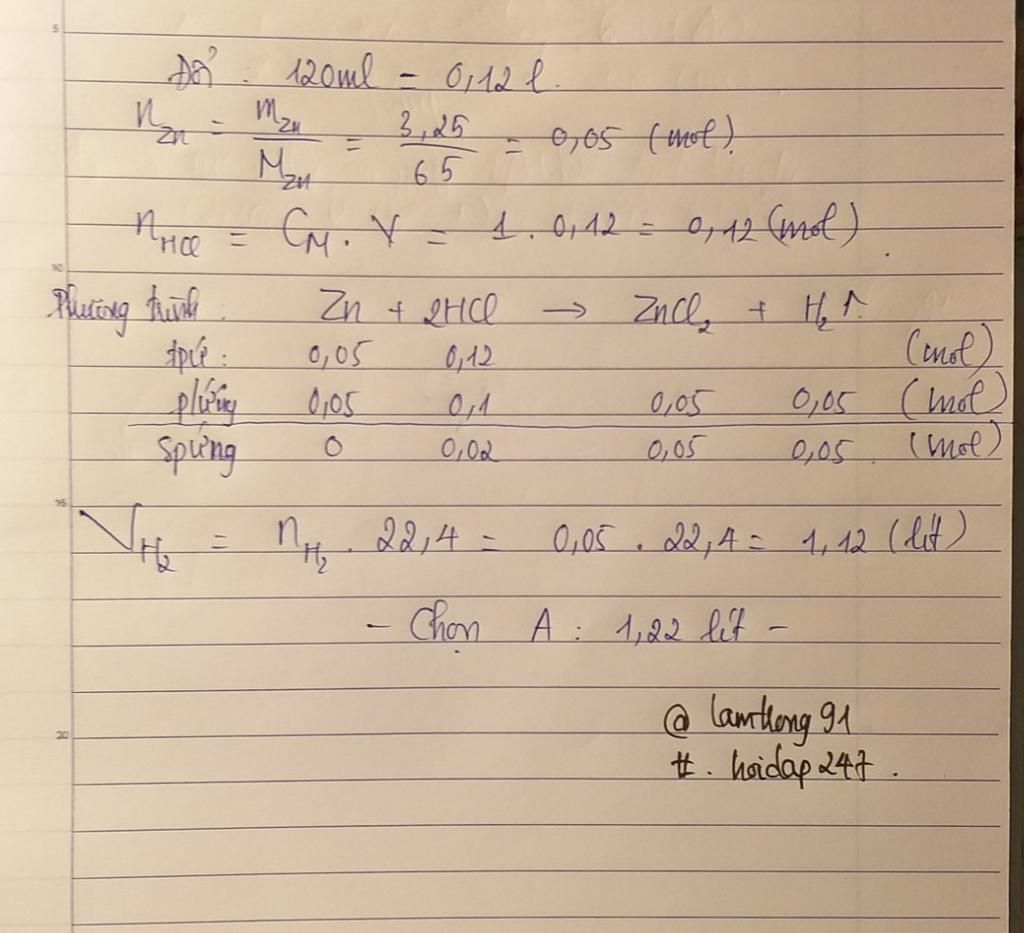 5
Đổi : 120ml = 0,12 l.
n_Zn = m_Zn / M_Zn = 3,25 / 65 = 0,05 (mol).
n_HCl = C_M . V = 1 . 0,12 = 0,12 (mol).
10
Phương trình : Zn + 2HCl → ZnCl₂ + H₂↑.
tpứ : 0,05 0,12 (mol)
pứng 0,05 0,1 0,05 0,05 (mol)
spứng 0 0,02 0,05 0,05 . (mol)
15
V_H₂ = n_H₂ . 22,4 = 0,05 . 22,4 = 1,12 (lít)
- Chọn A : 1,22 lít -
@ lamthong91
20
#. hoidap247 .